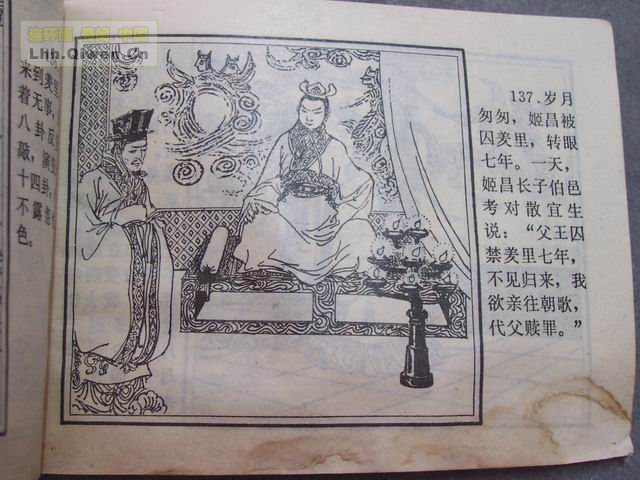 连环画 春阁·中国
Lhh.Qiwen.Cn
来到羑里
着无事,
八卦反
敲,演
十四卦,
不露
色。
137.岁月
匆匆,姬昌被
囚羑里,转眼
七年。一天,
姬昌长子伯邑
考对散宜生
说:“父王囚
禁羑里七年,
不见归来,我
欲亲往朝歌,
代父赎罪。”